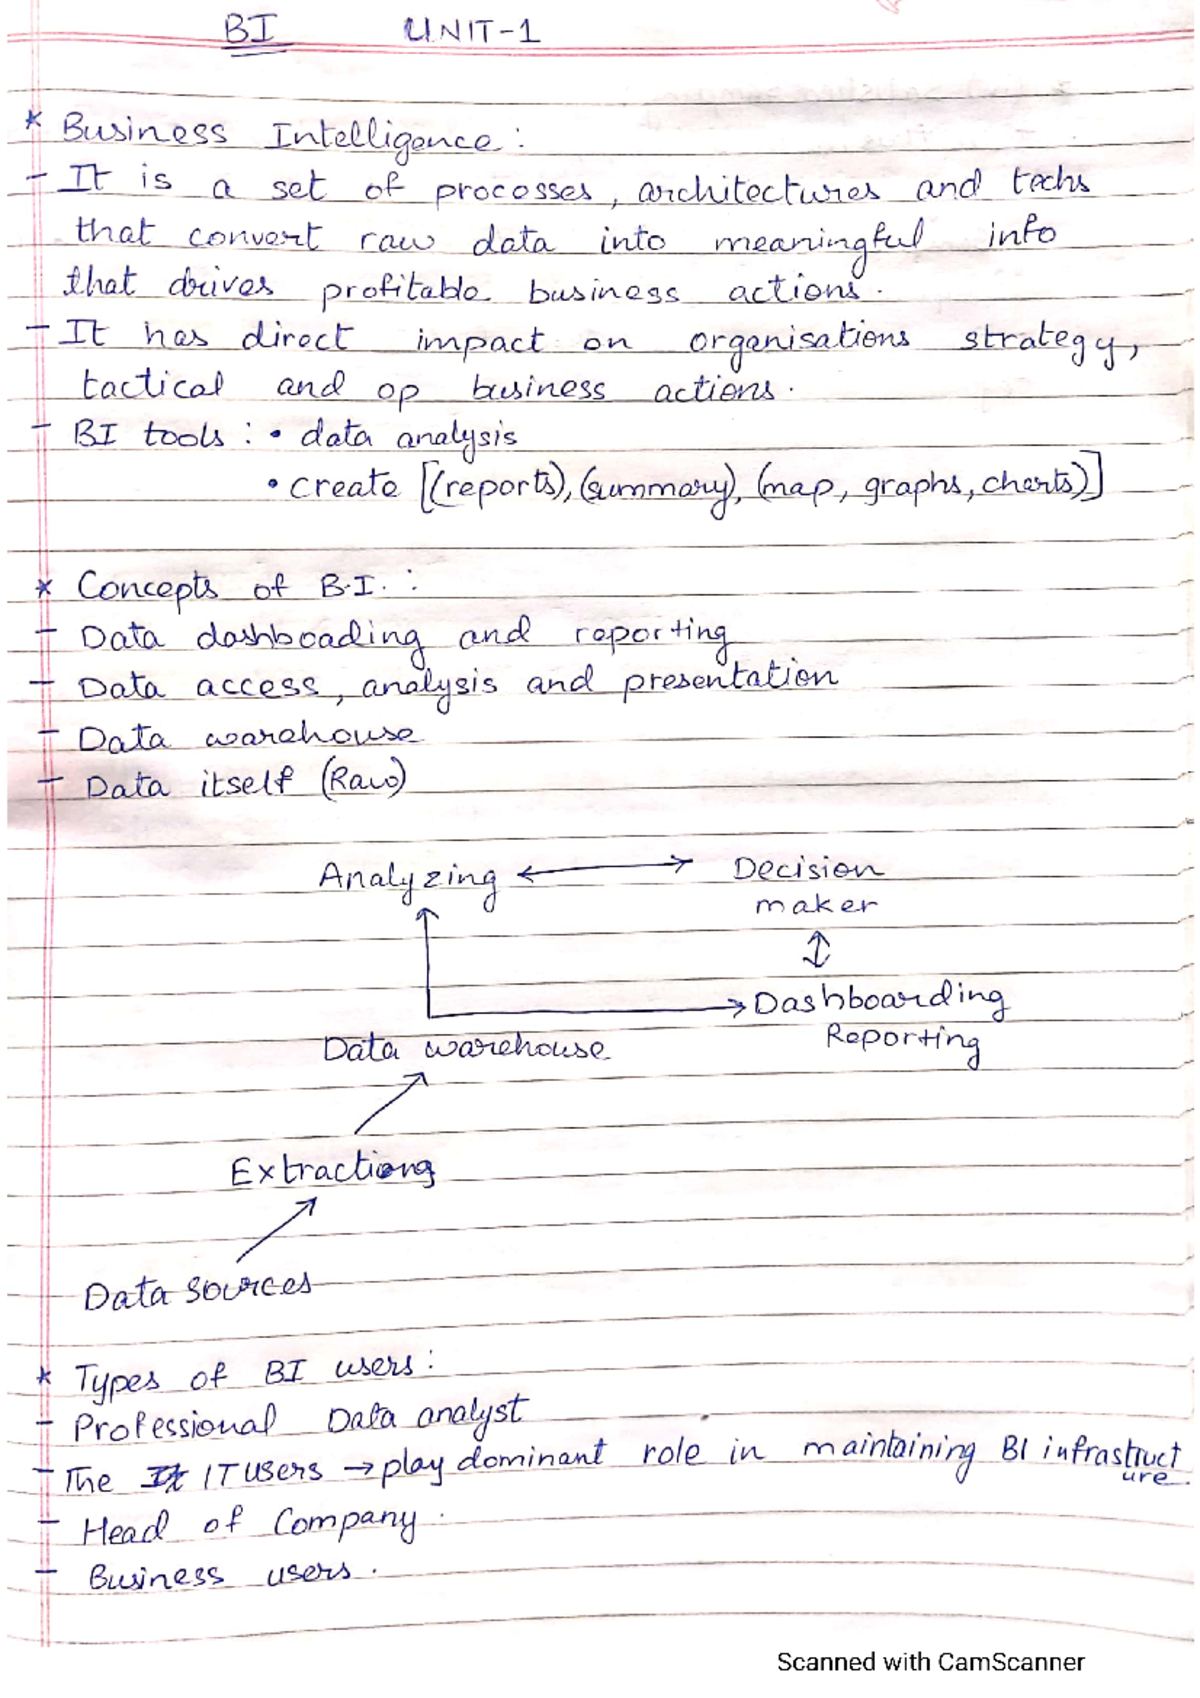 BI UNIT-1
* Business Intelligence :
- It is a set of processes, architectures and techs
that convert raw data into meaningful info
that drives profitable business actions.
- It has direct impact on organisations strategy,
tactical and op business actions.
- BI tools : • data analysis
• create [(reports), (summary), (map, graphs, charts)]
* Concepts of B.I. :
- Data dashboading and reporting
- Data access, analysis and presentation
- Data warehouse
- Data itself (Raw)
Analyzing ↔ Decision
maker
↕
→ Dashboarding
Reporting
Data warehouse
Extractiong
Data sources
* Types of BI users :
- Professional Data analyst
- The IT users → play dominant role in maintaining BI infrastruct
ure.
- Head of Company.
- Business users.
Scanned with CamScanner